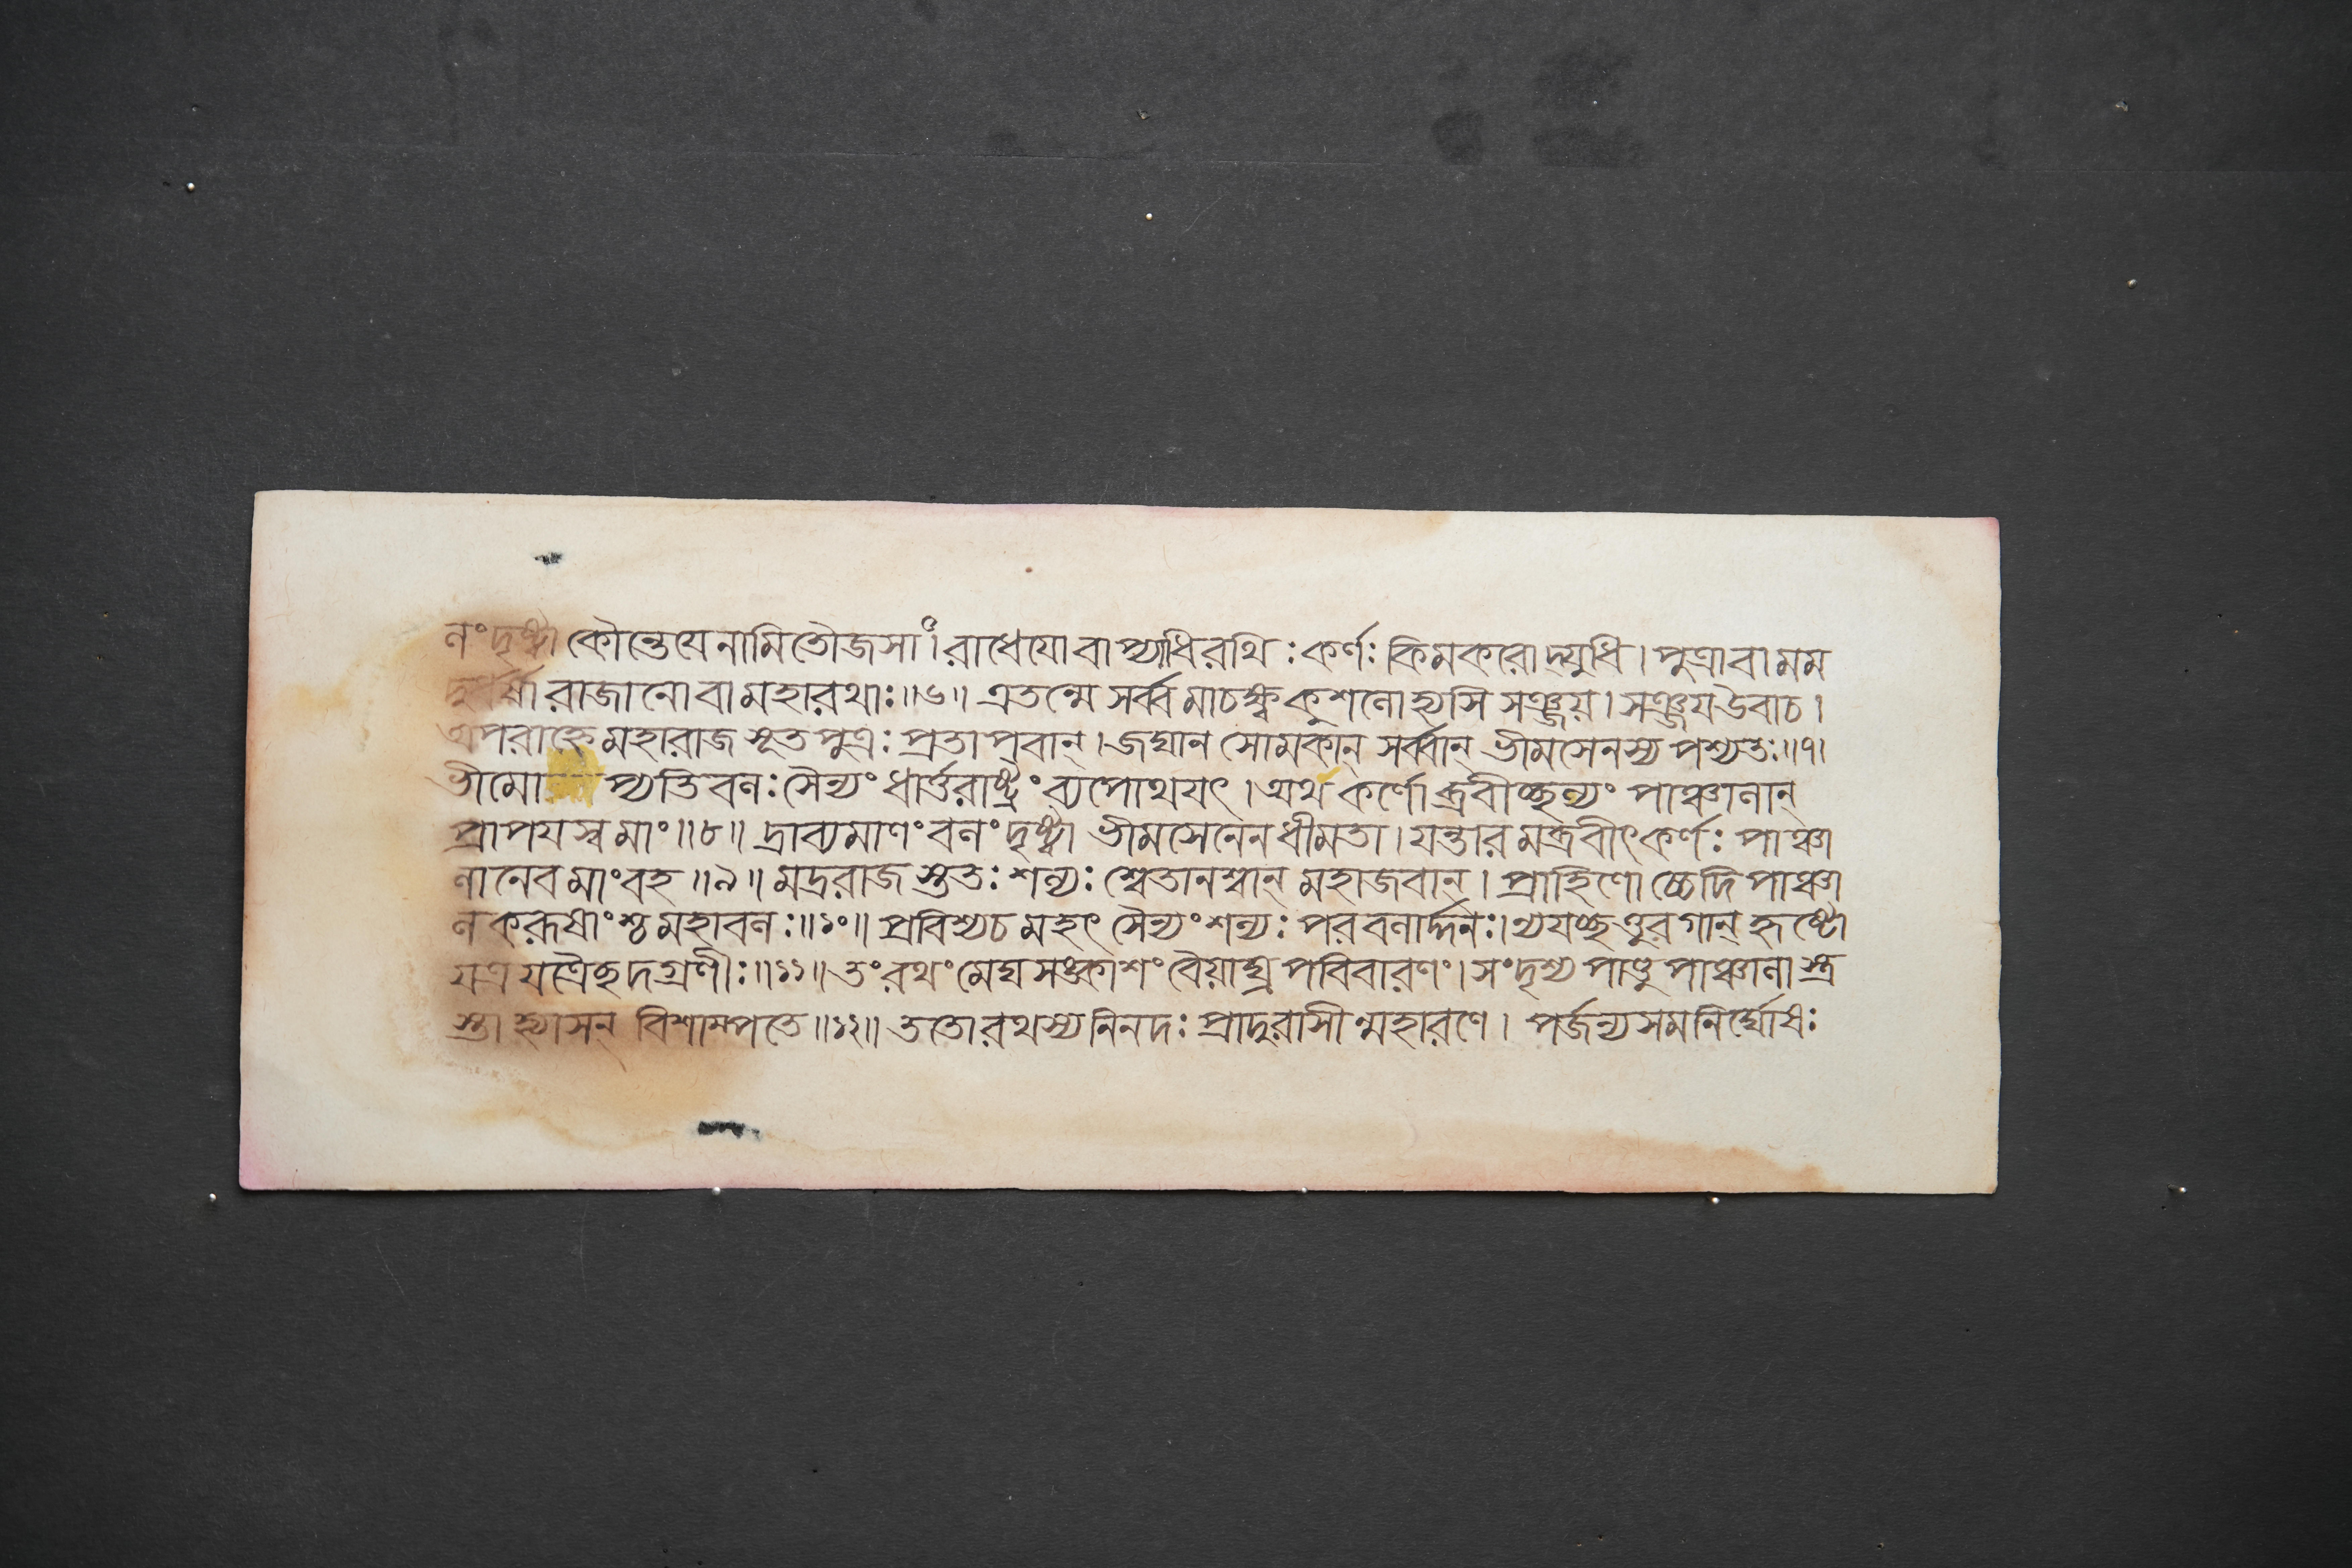 নং দৃষ্ট্বা কৌন্তেযেনামিতৌজসাং। রাধেযোবাপ্যাধিরথিঃ কর্ণঃ কিমকরোদ্যুধি। পুত্রাবামম
দুর্ধর্ষা রাজানোবামহারথাঃ॥৬॥ এতন্মে সর্ব্বমাচক্ষ্ব কুশলোহ্যসি সঞ্জয়। সঞ্জযউবাচ।
অপরাহ্ণে মহারাজ সূতপুত্রঃ প্রতাপবান্। জঘান সোমকান্ সর্ব্বান্ ভীমসেনস্য পশ্যতঃ॥৭।
ভীমো প্যতিবলঃ সৈন্যং ধার্ত্তরাষ্ট্রং ব্যপোথযৎ। অথ কর্ণোব্রবীচ্ছল্যং পাঞ্চালান্
প্রাপযস্ব মাং॥৮॥ দ্রাব্যমাণং বলং দৃষ্ট্বা ভীমসেনেন ধীমতা। যন্তারমব্রবীৎ কর্ণঃ পাঞ্চা
লানেব মাংবহ॥৯॥ মদ্ররাজ স্তুতঃ শল্যঃ শ্বেতানশ্বান্ মহাজবান্। প্রাহিণোচ্চেদিপাঞ্চা
লকরূষাংশ্চ মহাবলঃ॥১০॥ প্রবিশ্যচ মহৎ সৈন্যং শল্যঃ পরবলার্দ্দনঃ। ন্যযচ্ছত্তুরগান্ হৃষ্টো
যত্র যত্রৈচ্ছদগ্রণীঃ॥১১॥ তং রথং মেঘসঙ্কাশং বৈয়াঘ্র পবিবারণং। সংদৃশ্য পাণ্ডুপাঞ্চালাস্ত্র
স্তা হ্যাসন্ বিশাম্পতে॥১২॥ ততোরথস্য নিনদঃ প্রাদুরাসীন্মহারণে। পর্জন্যসমনির্ঘোষঃ